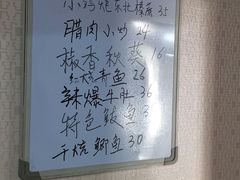 小鸡炖杂榛蘑 35
腊肉小炒 24
椒香秋葵 16
红烧青鱼 26
辣爆牛肚 36
特色鲅鱼 3
干烧鲫鱼 30